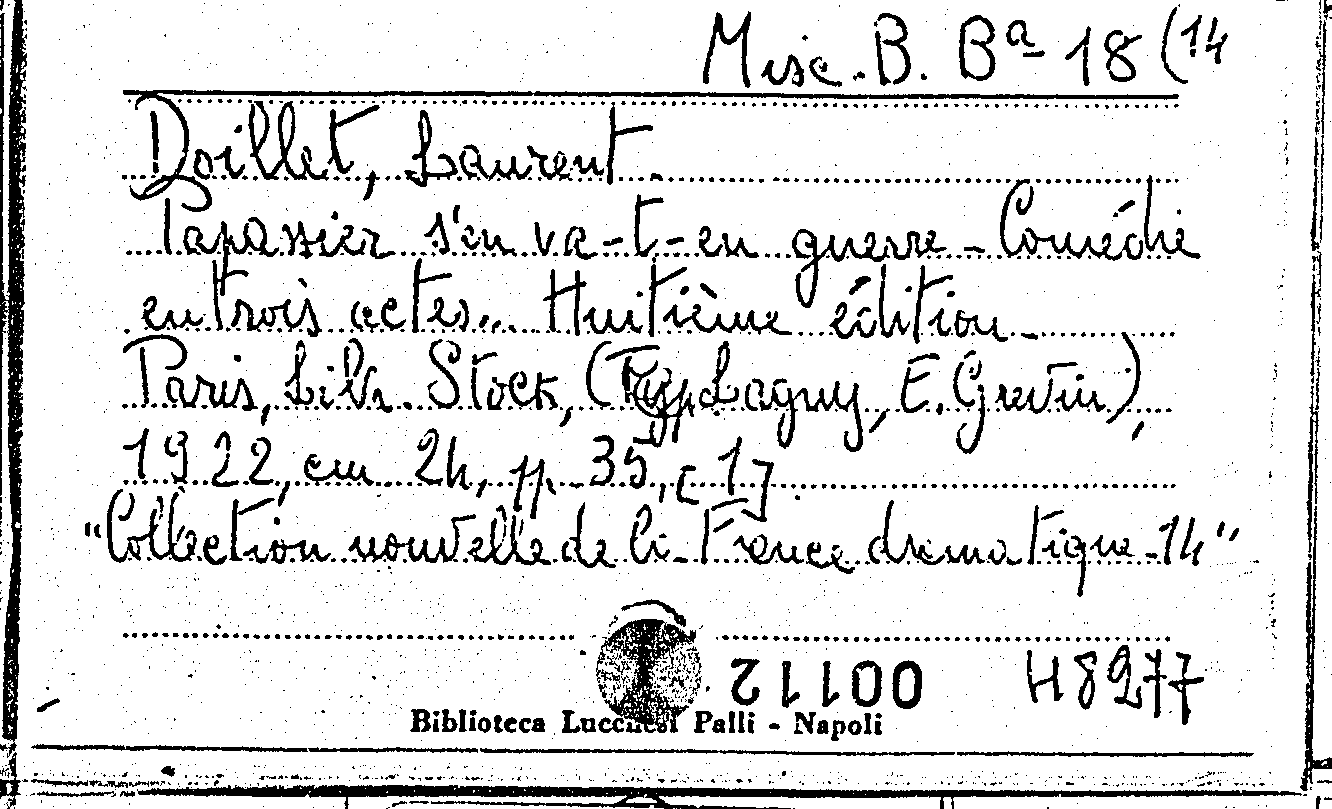 Misc. B. Bª 18 (14
Doillet, Laurent.
Papassier s'en va-t-en guerre - Comédie
en trois actes... Huitième édition -
Paris, Libr. Stock, (Typ. Lagny, E. Grevin),
1922, cm 24, pp. 35, [1]
"Collection nouvelle de la France dramatique - 14"
00112 H8277
Biblioteca Lucchesi Palli - Napoli